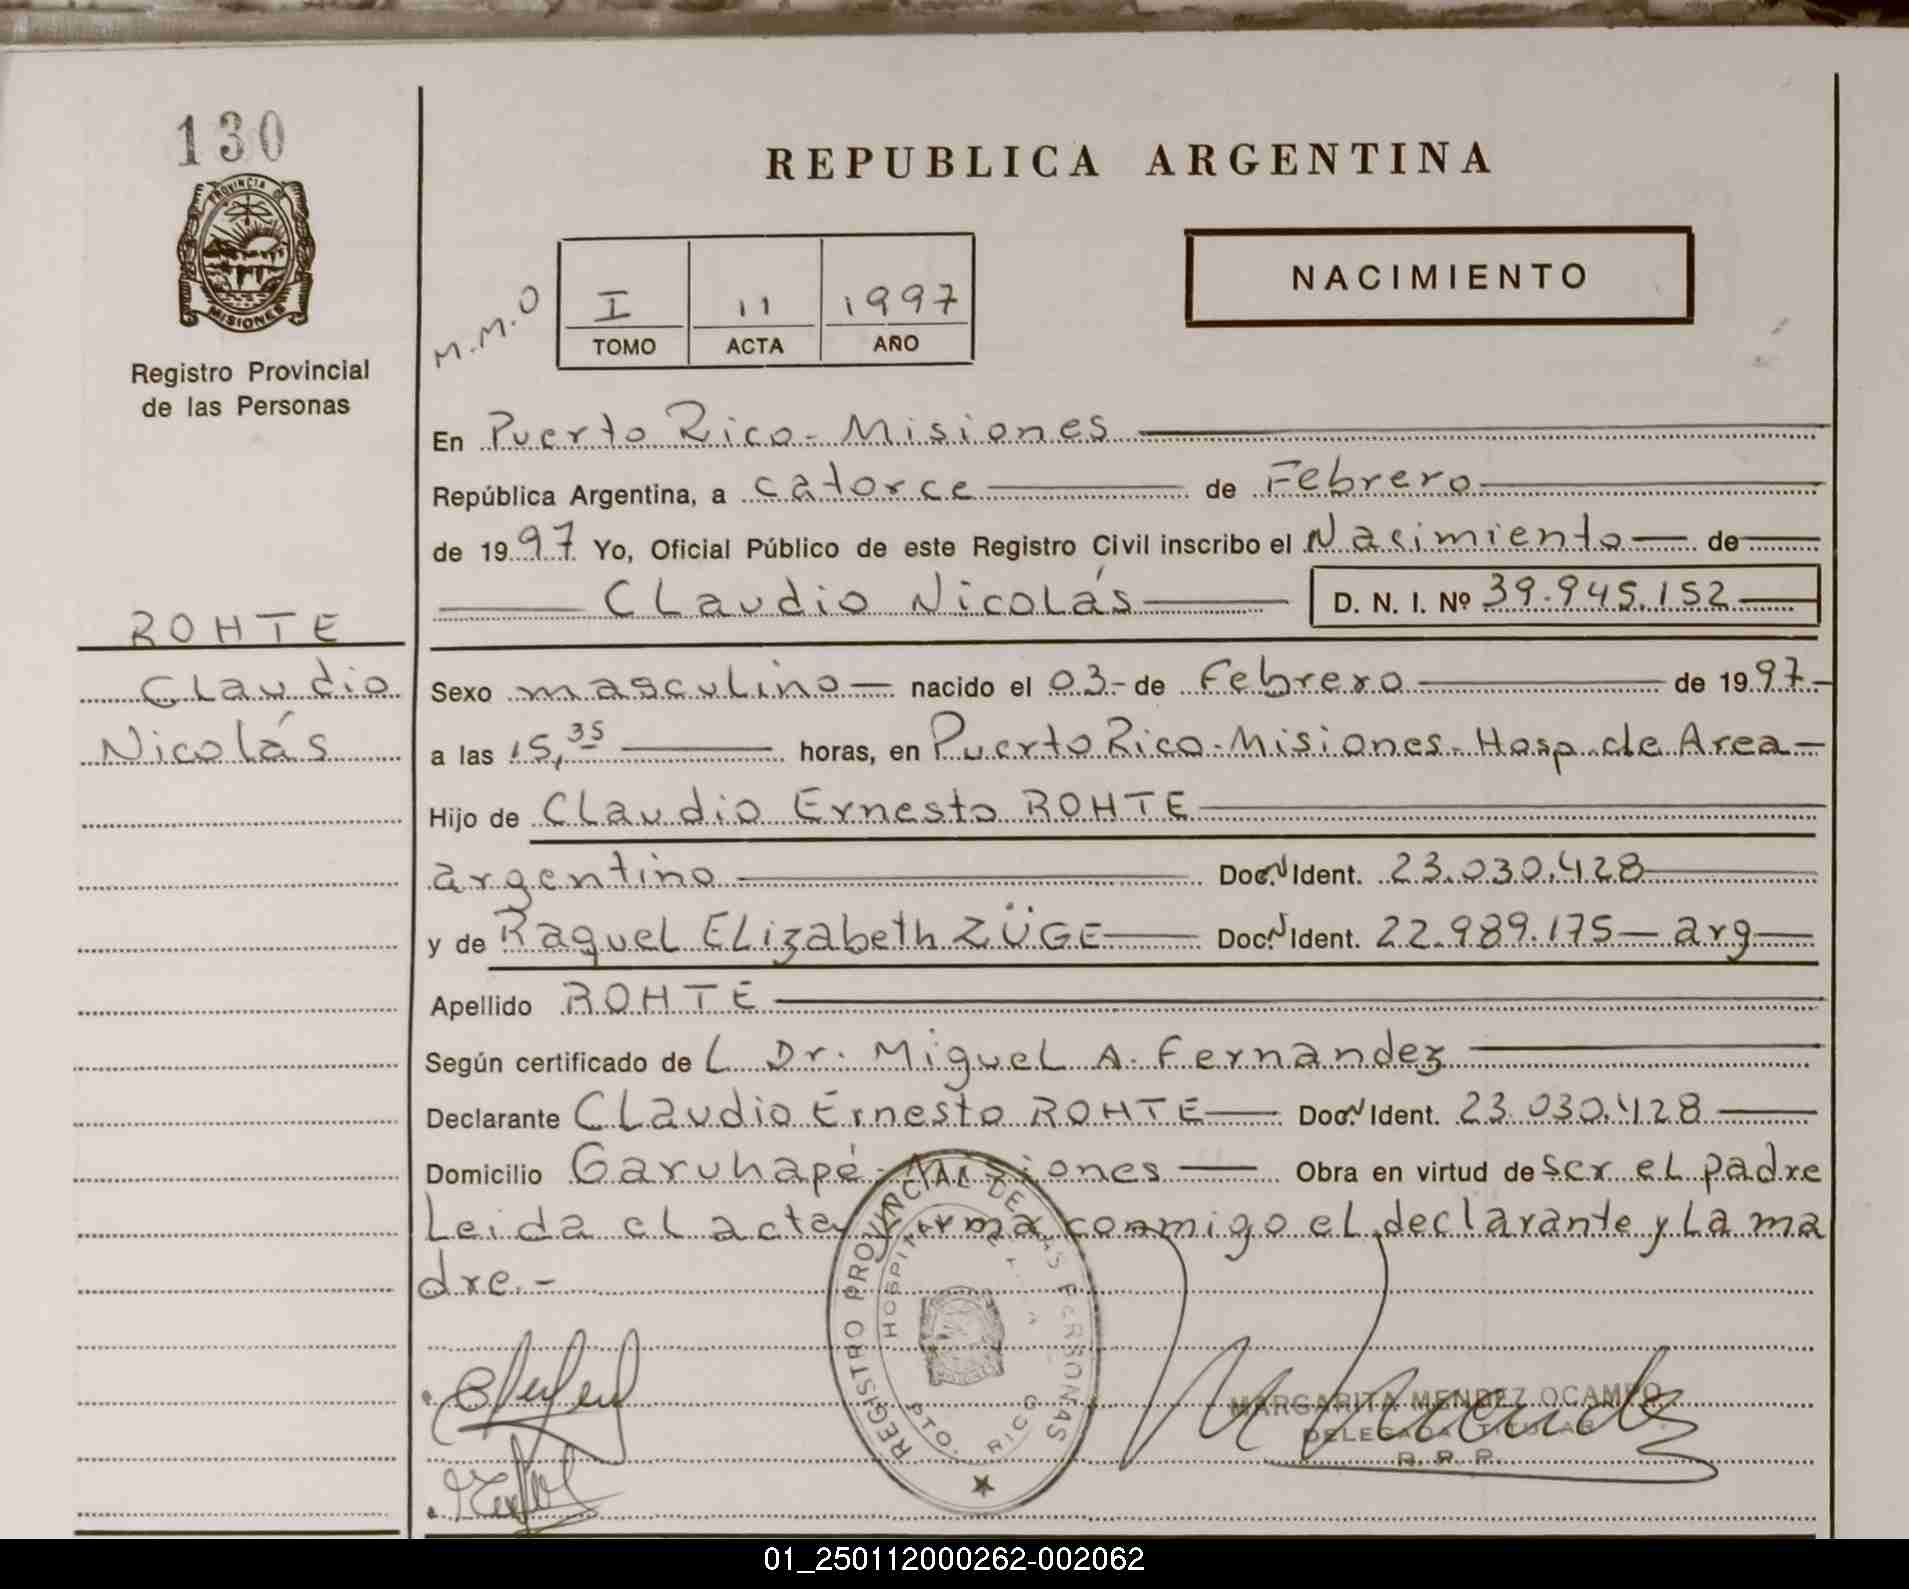 130
PROVINCIA DE
MISIONES
Registro Provincial
de las Personas
ROHTE
Claudio
Nicolás
REPUBLICA ARGENTINA
M.M.O
I 11 1997
TOMO ACTA AÑO
NACIMIENTO
En Puerto Rico - Misiones
República Argentina, a catorce de Febrero
de 1997 Yo, Oficial Público de este Registro Civil inscribo el Nacimiento de
Claudio Nicolás D. N. I. Nº 39.945.152
Sexo masculino nacido el 03 - de Febrero de 1997
a las 15,35 horas, en Puerto Rico - Misiones - Hosp. de Area
Hijo de Claudio Ernesto ROHTE
argentino Doc. N Ident. 23.030.428
y de Raquel Elizabeth ZÜGE Doc. N Ident. 22.989.175 - arg
Apellido ROHTE
Según certificado de L Dr. Miguel A. Fernandez
Declarante Claudio Ernesto ROHTE Doc. N Ident. 23.030.428
Domicilio Garuhapé - Misiones Obra en virtud de ser el padre
Leida el acta firma conmigo el declarante y La ma
dre.-
REGISTRO PROVINCIAL DE LAS PERSONAS
HOSPITAL
PTO. RICO
MARGARITA MENDEZ OCAMPO
DELEGADA TITULAR
R. P. P.
01_250112000262-002062